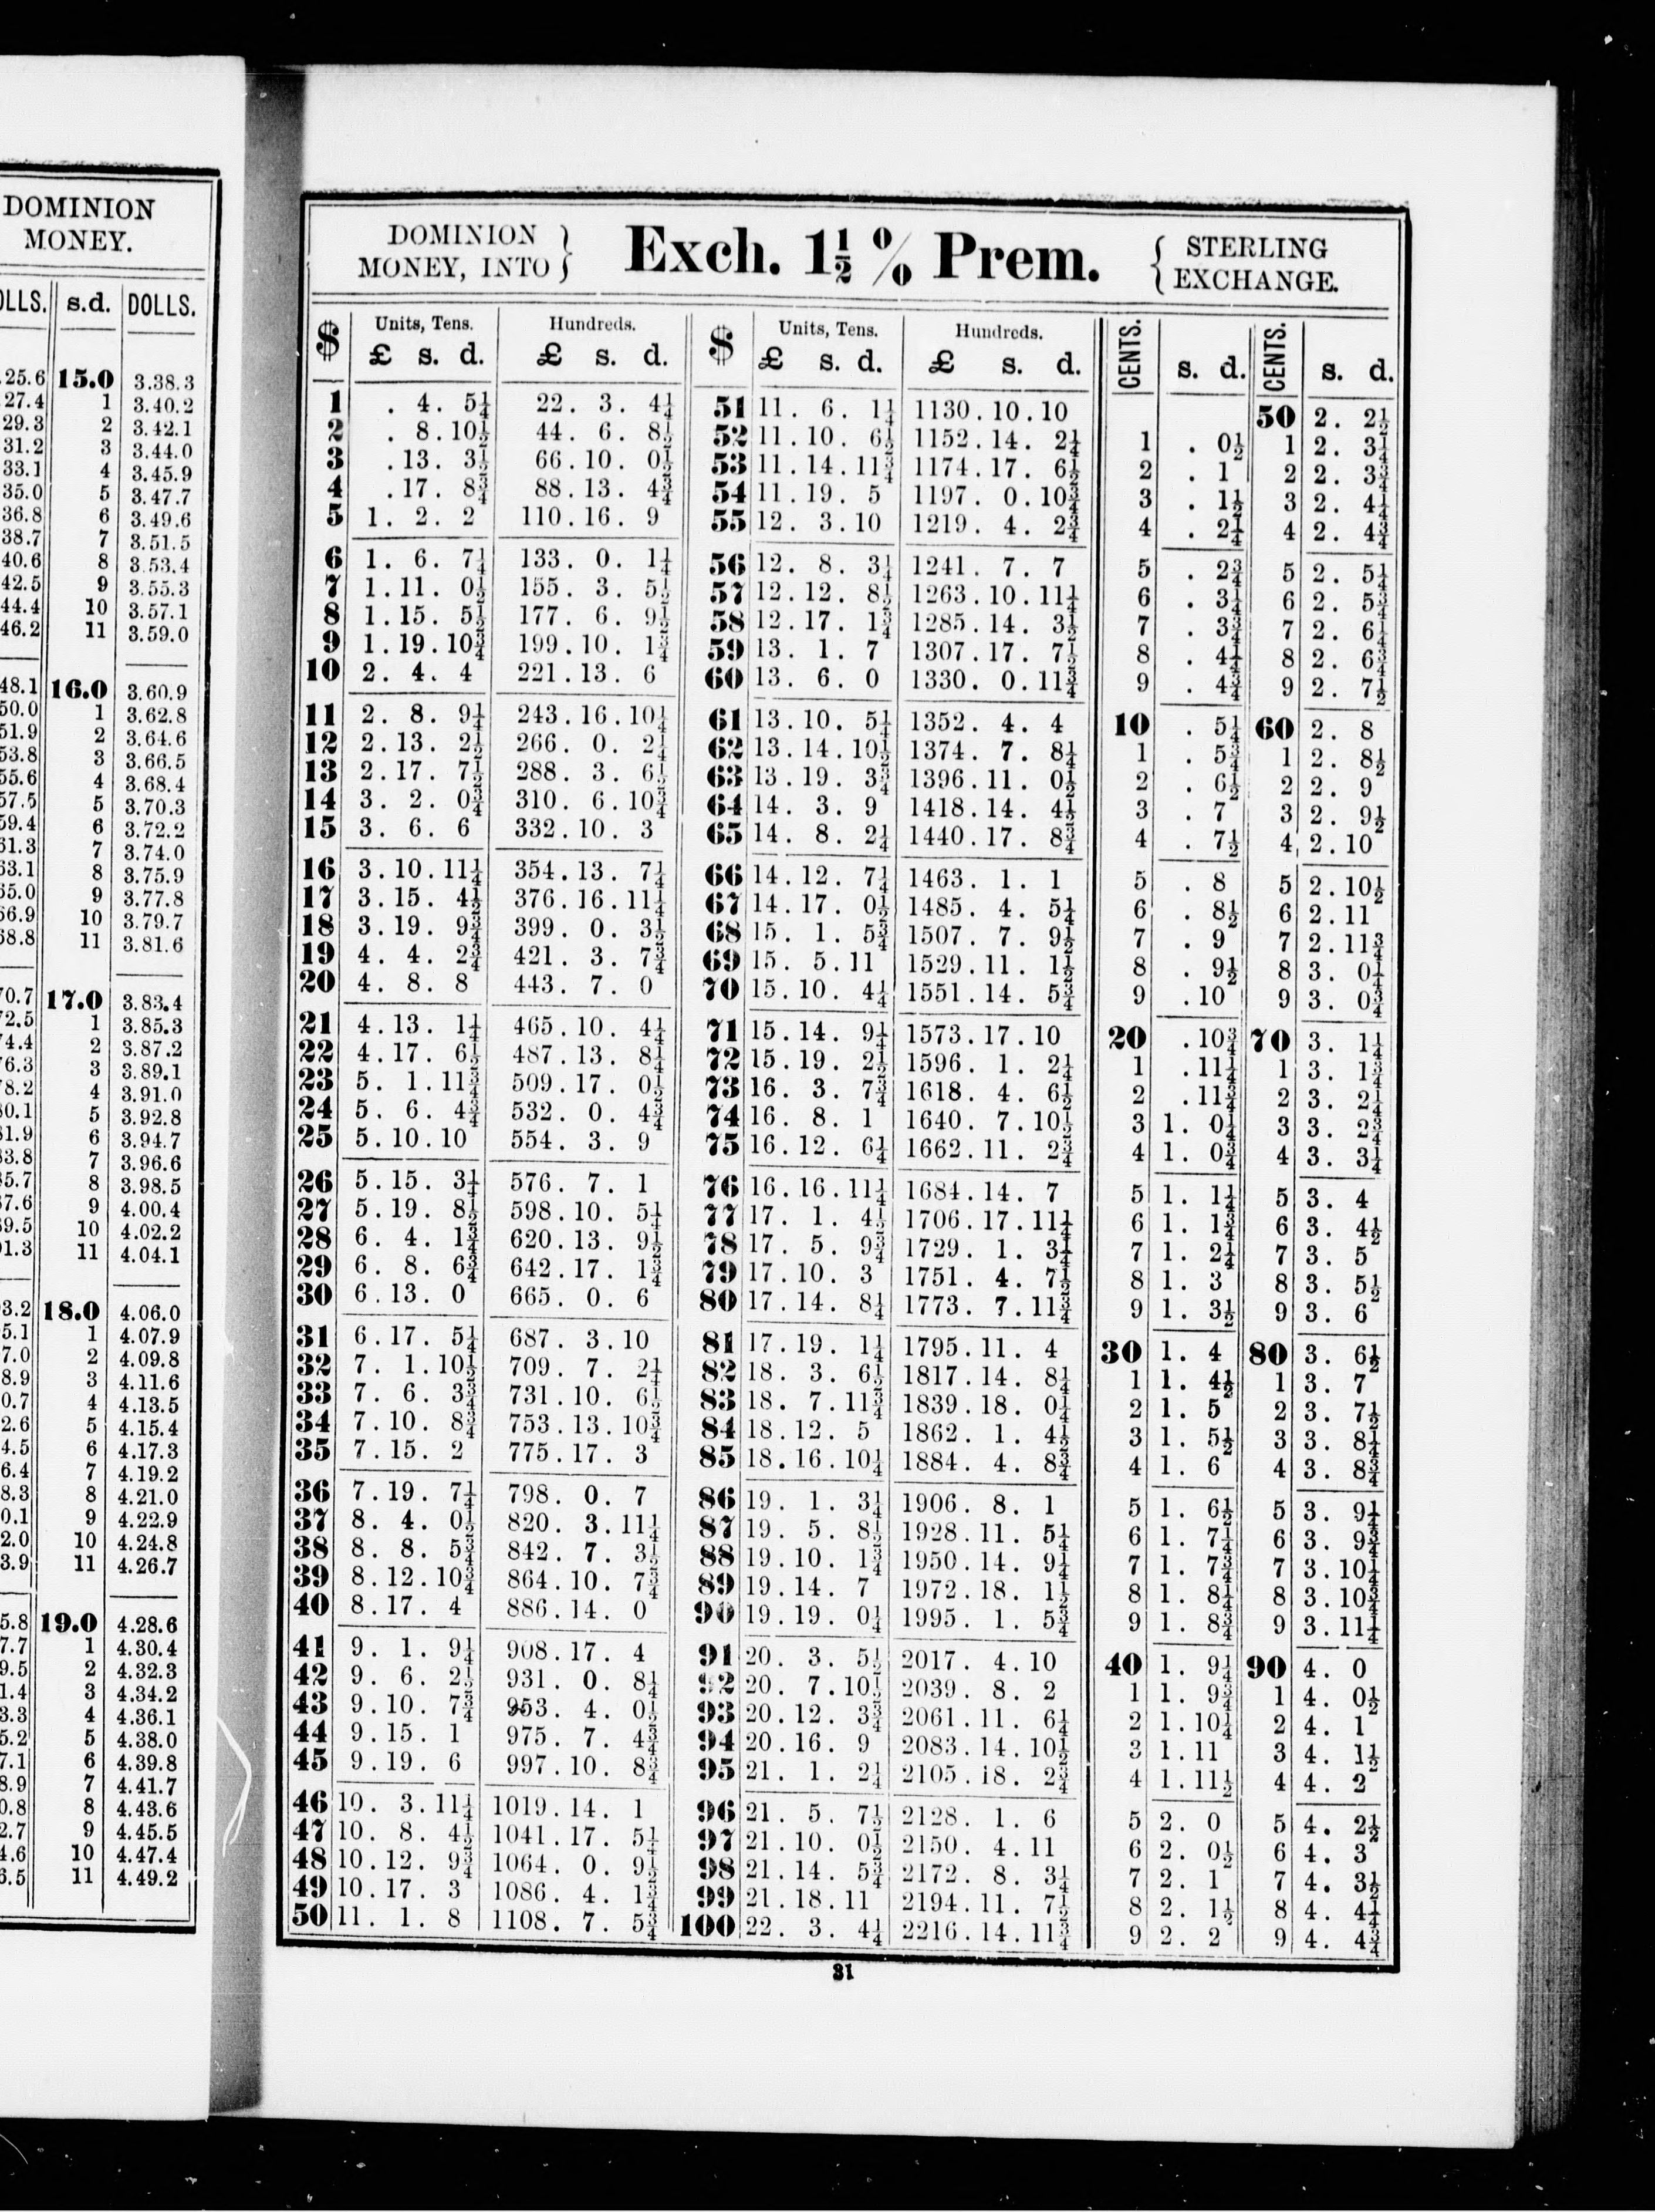 DOMINION
MONEY.
OLLS. s.d. DOLLS.
.25.6 15.0 3.38.3
27.4 1 3.40.2
29.3 2 3.42.1
31.2 3 3.44.0
33.1 4 3.45.9
35.0 5 3.47.7
36.8 6 3.49.6
38.7 7 3.51.5
40.6 8 3.53.4
42.5 9 3.55.3
44.4 10 3.57.1
46.2 11 3.59.0
48.1 16.0 3.60.9
50.0 1 3.62.8
51.9 2 3.64.6
53.8 3 3.66.5
55.6 4 3.68.4
57.5 5 3.70.3
59.4 6 3.72.2
61.3 7 3.74.0
63.1 8 3.75.9
65.0 9 3.77.8
66.9 10 3.79.7
68.8 11 3.81.6
70.7 17.0 3.83.4
72.5 1 3.85.3
74.4 2 3.87.2
76.3 3 3.89.1
78.2 4 3.91.0
80.1 5 3.92.8
81.9 6 3.94.7
83.8 7 3.96.6
85.7 8 3.98.5
87.6 9 4.00.4
89.5 10 4.02.2
91.3 11 4.04.1
3.2 18.0 4.06.0
5.1 1 4.07.9
7.0 2 4.09.8
8.9 3 4.11.6
0.7 4 4.13.5
2.6 5 4.15.4
4.5 6 4.17.3
6.4 7 4.19.2
8.3 8 4.21.0
0.1 9 4.22.9
2.0 10 4.24.8
3.9 11 4.26.7
5.8 19.0 4.28.6
7.7 1 4.30.4
9.5 2 4.32.3
1.4 3 4.34.2
3.3 4 4.36.1
5.2 5 4.38.0
7.1 6 4.39.8
8.9 7 4.41.7
0.8 8 4.43.6
2.7 9 4.45.5
4.6 10 4.47.4
6.5 11 4.49.2
DOMINION MONEY, INTO } Exch. 1½ % Prem. { STERLING EXCHANGE.
$ Units, Tens. Hundreds. $ Units, Tens. Hundreds. CENTS. CENTS.
£ s. d. £ s. d. £ s. d. £ s. d. s. d. s. d.
1 . 4. 5¼ 22. 3. 4¼ 51 11. 6. 1¼ 1130.10.10 50 2. 2½
2 . 8.10½ 44. 6. 8½ 52 11.10. 6½ 1152.14. 2¼ 1 . 0½ 1 2. 3¼
3 .13. 3½ 66.10. 0½ 53 11.14.11¾ 1174.17. 6½ 2 . 1 2 2. 3¾
4 .17. 8¾ 88.13. 4¾ 54 11.19. 5 1197. 0.10¾ 3 . 1½ 3 2. 4¼
5 1. 2. 2 110.16. 9 55 12. 3.10 1219. 4. 2¾ 4 . 2¼ 4 2. 4¾
6 1. 6. 7¼ 133. 0. 1¼ 56 12. 8. 3¼ 1241. 7. 7 5 . 2¾ 5 2. 5¼
7 1.11. 0½ 155. 3. 5½ 57 12.12. 8½ 1263.10.11¼ 6 . 3¼ 6 2. 5¾
8 1.15. 5½ 177. 6. 9½ 58 12.17. 1¾ 1285.14. 3½ 7 . 3¾ 7 2. 6¼
9 1.19.10¾ 199.10. 1¾ 59 13. 1. 7 1307.17. 7½ 8 . 4¼ 8 2. 6¾
10 2. 4. 4 221.13. 6 60 13. 6. 0 1330. 0.11¾ 9 . 4¾ 9 2. 7½
11 2. 8. 9¼ 243.16.10¼ 61 13.10. 5¼ 1352. 4. 4 10 . 5¼ 60 2. 8
12 2.13. 2½ 266. 0. 2¼ 62 13.14.10½ 1374. 7. 8¼ 1 . 5¾ 1 2. 8½
13 2.17. 7½ 288. 3. 6½ 63 13.19. 3¾ 1396.11. 0½ 2 . 6½ 2 2. 9
14 3. 2. 0¾ 310. 6.10¾ 64 14. 3. 9 1418.14. 4½ 3 . 7 3 2. 9½
15 3. 6. 6 332.10. 3 65 14. 8. 2¼ 1440.17. 8¾ 4 . 7½ 4 2.10
16 3.10.11¼ 354.13. 7¼ 66 14.12. 7¼ 1463. 1. 1 5 . 8 5 2.10½
17 3.15. 4½ 376.16.11¼ 67 14.17. 0½ 1485. 4. 5¼ 6 . 8½ 6 2.11
18 3.19. 9¾ 399. 0. 3½ 68 15. 1. 5¾ 1507. 7. 9½ 7 . 9 7 2.11¾
19 4. 4. 2¾ 421. 3. 7¾ 69 15. 5.11 1529.11. 1½ 8 . 9½ 8 3. 0¼
20 4. 8. 8 443. 7. 0 70 15.10. 4¼ 1551.14. 5¾ 9 .10 9 3. 0¾
21 4.13. 1¼ 465.10. 4¼ 71 15.14. 9¼ 1573.17.10 20 .10¾ 70 3. 1¼
22 4.17. 6½ 487.13. 8¼ 72 15.19. 2½ 1596. 1. 2¼ 1 .11¼ 1 3. 1¾
23 5. 1.11¾ 509.17. 0½ 73 16. 3. 7¾ 1618. 4. 6½ 2 .11¾ 2 3. 2¼
24 5. 6. 4¾ 532. 0. 4¾ 74 16. 8. 1 1640. 7.10½ 3 1. 0¼ 3 3. 2¾
25 5.10.10 554. 3. 9 75 16.12. 6¼ 1662.11. 2¾ 4 1. 0¾ 4 3. 3¼
26 5.15. 3¼ 576. 7. 1 76 16.16.11¼ 1684.14. 7 5 1. 1¼ 5 3. 4
27 5.19. 8½ 598.10. 5¼ 77 17. 1. 4½ 1706.17.11¼ 6 1. 1¾ 6 3. 4½
28 6. 4. 1¾ 620.13. 9½ 78 17. 5. 9¾ 1729. 1. 3¼ 7 1. 2¼ 7 3. 5
29 6. 8. 6¾ 642.17. 1¾ 79 17.10. 3 1751. 4. 7½ 8 1. 3 8 3. 5½
30 6.13. 0 665. 0. 6 80 17.14. 8¼ 1773. 7.11¾ 9 1. 3½ 9 3. 6
31 6.17. 5¼ 687. 3.10 81 17.19. 1¼ 1795.11. 4 30 1. 4 80 3. 6½
32 7. 1.10½ 709. 7. 2¼ 82 18. 3. 6½ 1817.14. 8¼ 1 1. 4½ 1 3. 7
33 7. 6. 3¾ 731.10. 6½ 83 18. 7.11¾ 1839.18. 0¼ 2 1. 5 2 3. 7½
34 7.10. 8¾ 753.13.10¾ 84 18.12. 5 1862. 1. 4½ 3 1. 5½ 3 3. 8¼
35 7.15. 2 775.17. 3 85 18.16.10¼ 1884. 4. 8¾ 4 1. 6 4 3. 8¾
36 7.19. 7¼ 798. 0. 7 86 19. 1. 3¼ 1906. 8. 1 5 1. 6½ 5 3. 9¼
37 8. 4. 0½ 820. 3.11¼ 87 19. 5. 8½ 1928.11. 5¼ 6 1. 7¼ 6 3. 9¾
38 8. 8. 5¾ 842. 7. 3½ 88 19.10. 1¾ 1950.14. 9¼ 7 1. 7¾ 7 3.10¼
39 8.12.10¾ 864.10. 7¾ 89 19.14. 7 1972.18. 1½ 8 1. 8¼ 8 3.10¾
40 8.17. 4 886.14. 0 90 19.19. 0¼ 1995. 1. 5¾ 9 1. 8¾ 9 3.11¼
41 9. 1. 9¼ 908.17. 4 91 20. 3. 5½ 2017. 4.10 40 1. 9¼ 90 4. 0
42 9. 6. 2½ 931. 0. 8¼ 92 20. 7.10½ 2039. 8. 2 1 1. 9¾ 1 4. 0½
43 9.10. 7¾ 953. 4. 0½ 93 20.12. 3¾ 2061.11. 6¼ 2 1.10¼ 2 4. 1
44 9.15. 1 975. 7. 4¾ 94 20.16. 9 2083.14.10½ 3 1.11 3 4. 1½
45 9.19. 6 997.10. 8¾ 95 21. 1. 2¼ 2105.18. 2¾ 4 1.11½ 4 4. 2
46 10. 3.11¼ 1019.14. 1 96 21. 5. 7½ 2128. 1. 6 5 2. 0 5 4. 2½
47 10. 8. 4½ 1041.17. 5¼ 97 21.10. 0½ 2150. 4.11 6 2. 0½ 6 4. 3
48 10.12. 9¾ 1064. 0. 9½ 98 21.14. 5¾ 2172. 8. 3¼ 7 2. 1 7 4. 3½
49 10.17. 3 1086. 4. 1¾ 99 21.18.11 2194.11. 7½ 8 2. 1½ 8 4. 4¼
50 11. 1. 8 1108. 7. 5¾ 100 22. 3. 4¼ 2216.14.11¾ 9 2. 2 9 4. 4¾
31